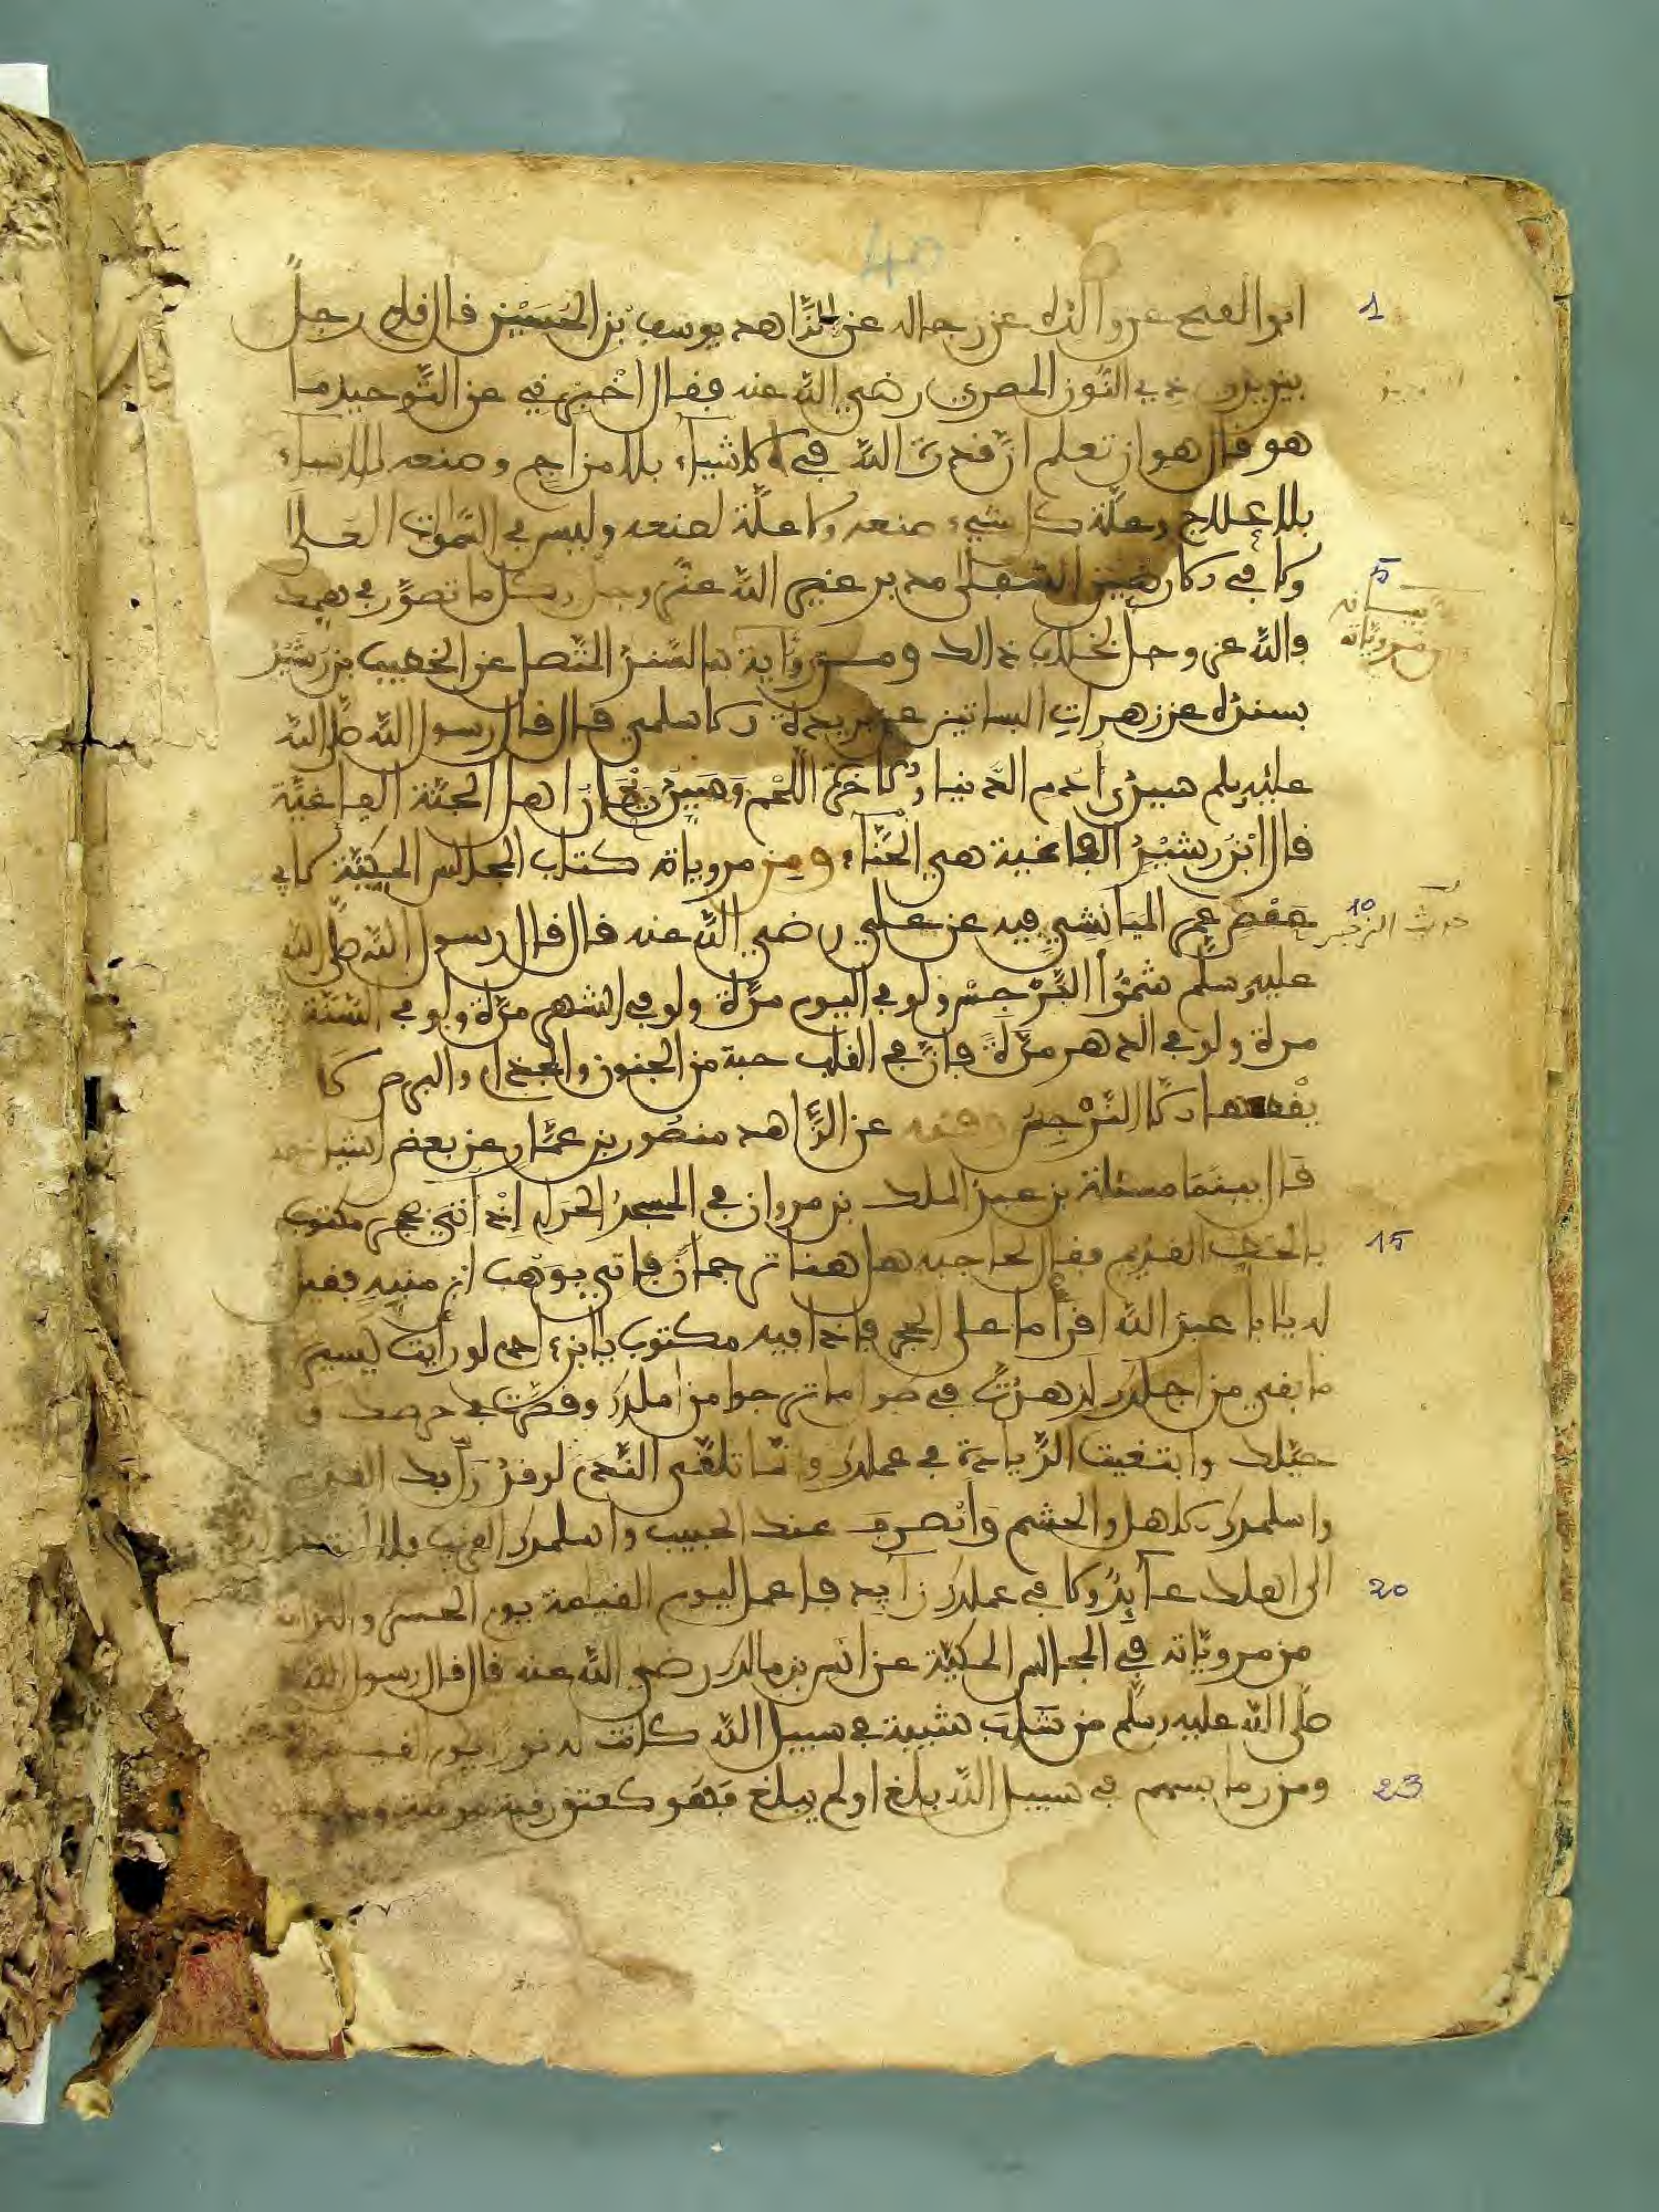 40
1
ابو الفتح عن والده عن رجاله عن الزاهد يوسف بن الحسين قال قام رجل
بين يدي ذي النون المصري رضي الله عنه فقال اخبرني عن التوحيد ما
هو قال هو ان تعلم ان قدرة الله في الاشياء بلا مزاج وصنعه للاشياء
بلا علاج وعلة كل شيء صنعه ولا علة لصنعه وليس في السموات العلى
5
ولا في الارضين السفلى مدبر غير الله عز وجل وكل ما تصور في وهمك
فالله عز وجل بخلاف ذالك ومن مروياته بالسند المتصل عن الخطيب بن رشيد
بسنده عن زهرات البساتين عن بريدة الاسلمي قال قال رسول الله صلى الله
عليه وسلم سيد ادم الدنيا والاخرة اللحم وسيد ريحان اهل الجنة الفاغية
قال ابن رشيد الفاغية هي الحناء ومن مروياته كتاب المجالس المكية لابي
10
حديث النرجس
حفص عمر الميانشي فيه عن علي رضي الله عنه قال قال رسول الله صلى الله
عليه وسلم شموا النرجس ولو في اليوم مرة ولو في الشهر مرة ولو في السنة
مرة ولو في الدهر مرة فان في القلب حبة من الجنون والجذام والبرص لا
يقطعها الا النرجس وفيه عن الزاهد منصور بن عمار عن بعض اشياخه
قال بينما مسلمة بن عبد الملك بن مروان في المسجد الحرام اذ أتي بحجر مكتوب
15
بالخط القديم فقال لحاجبه هل هنا ترجمان فاتي بوهب ابن منبه فقيل
له يا ابا عبد الله اقرأ ما على الحجر فاذا فيه مكتوب يا ابن ءادم لو رأيت يسير
ما بقي من اجلك لزهدت في طول ما ترجوا من املك وقصرت في حرصك و
حيلك وابتغيت الزيادة في عملك وانما تلقى الندم لو قد زل بك القدم
واسلمك الاهل والحشم وانصرف عنك الحبيب واسلمك القريب فلا انت
20
الى اهلك عائد ولا في عملك زايد فاعمل ليوم القيمة يوم الحسرة والندامة
من مروياته في المجالس المكية عن انس بن مالك رضي الله عنه قال قال رسول الله
صلى الله عليه وسلم من شاب شيبة في سبيل الله كانت له نورا يوم القيمة
23
ومن رما بسهم في سبيل الله بلغ او لم يبلغ فهو كعتق رقبة مومنة ومن